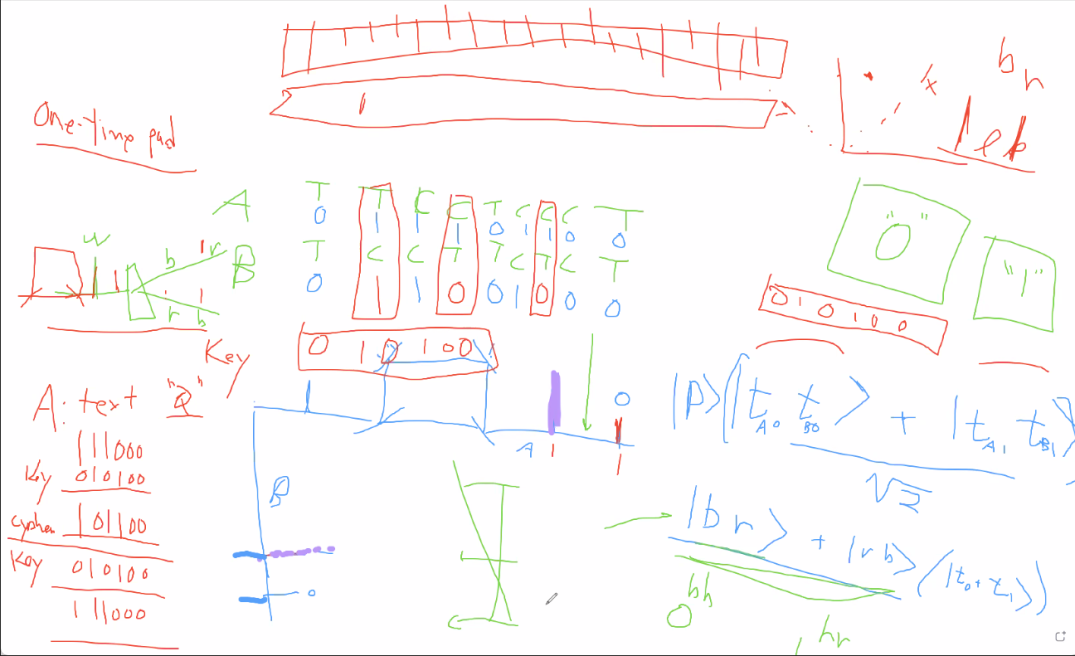 b r
One-time pad
A T T C C T C C C T
0 1 1 1 0 1 1 0 0
B T C C T T C T C T
0 1 1 0 0 1 0 0 0
w b 1 r
r b 1
"0"
"1"
0 1 0 1 0 0
Key 0 1 0 1 0 0
A: text "Q"
111000
Key 010100
cypher 101100
Key 010100
111000
B
0
A 1
0
1
|P> (|t_A0 t_B0> + |t_A1 t_B1>
√2
|b r> + |r b> (|t_0 + t_1>)
bb
0
1 hr